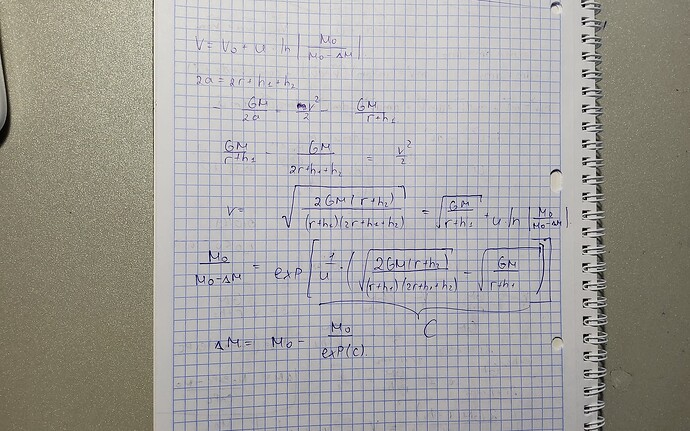 V = V₀ + u · ln | M₀ / (M₀ - ΔM) |
2a = 2r + h₁ + h₂
- GM / 2a = v² / 2 - GM / (r+h₁)
GM / (r+h₁) - GM / (2r+h₁+h₂) = v² / 2
V = √( 2GM(r+h₂) / (r+h₁)(2r+h₁+h₂) ) = √( GM / (r+h₁) ) + u ln | M₀ / (M₀-ΔM) |
M₀ / (M₀-ΔM) = exp [ 1/u · ( √( 2GM(r+h₂) / (r+h₁)(2r+h₁+h₂) ) - √( GM / (r+h₁) ) ) ]
C
ΔM = M₀ - M₀ / exp(c).